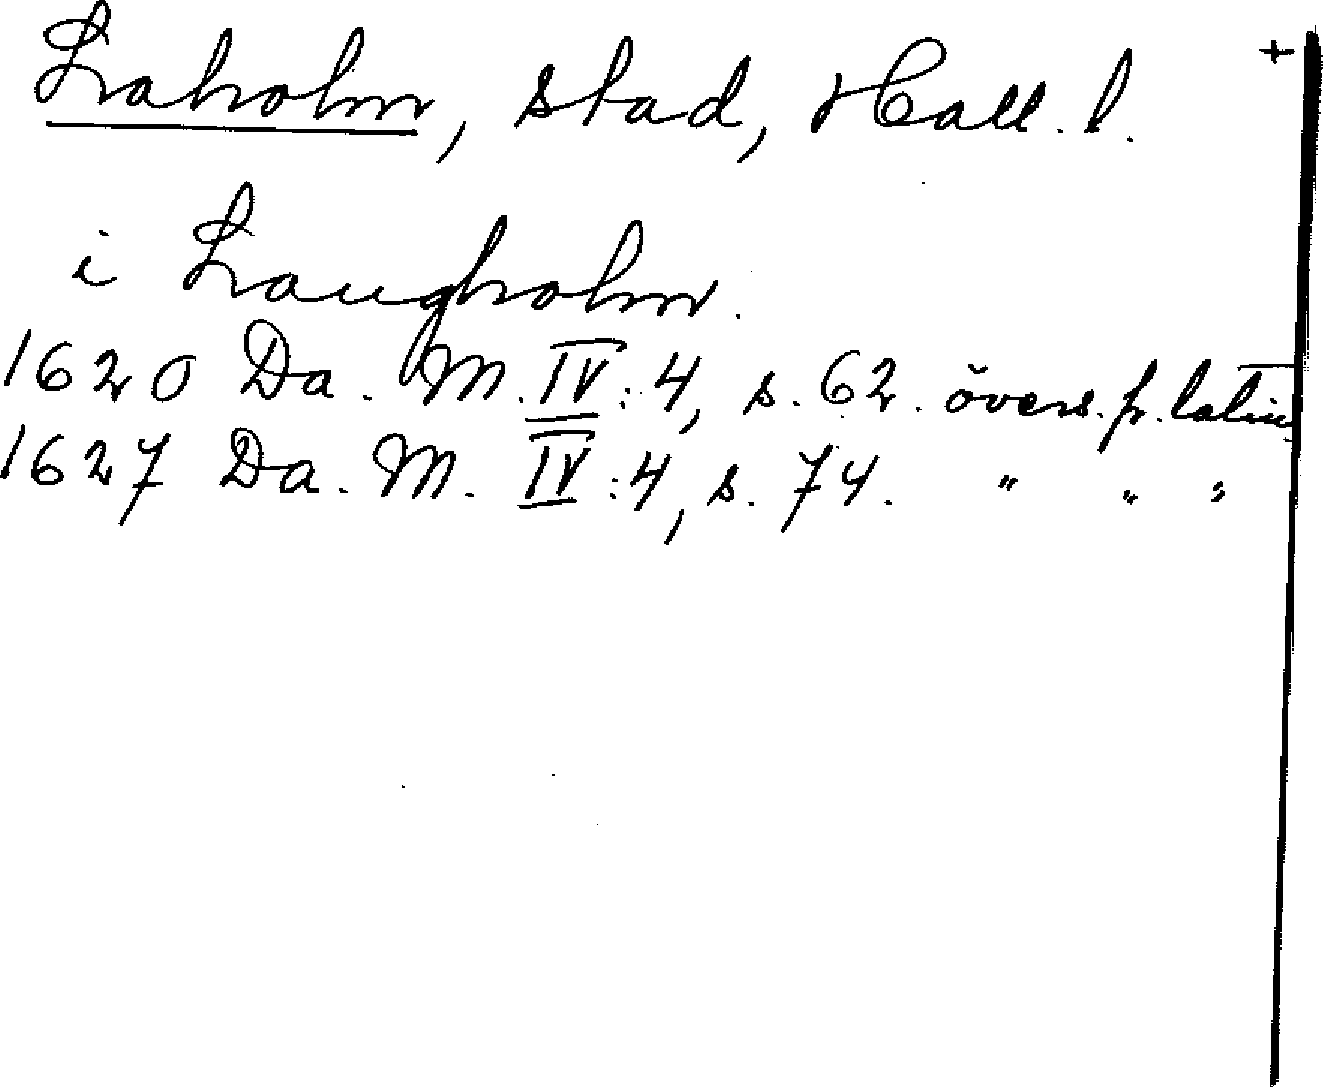 Laholm, stad, Hall. l. +
i Laugholm.
1620 Da. M. IV:4, s. 62. övers. fr. latin
1627 Da. M. IV:4, s. 74. " " "